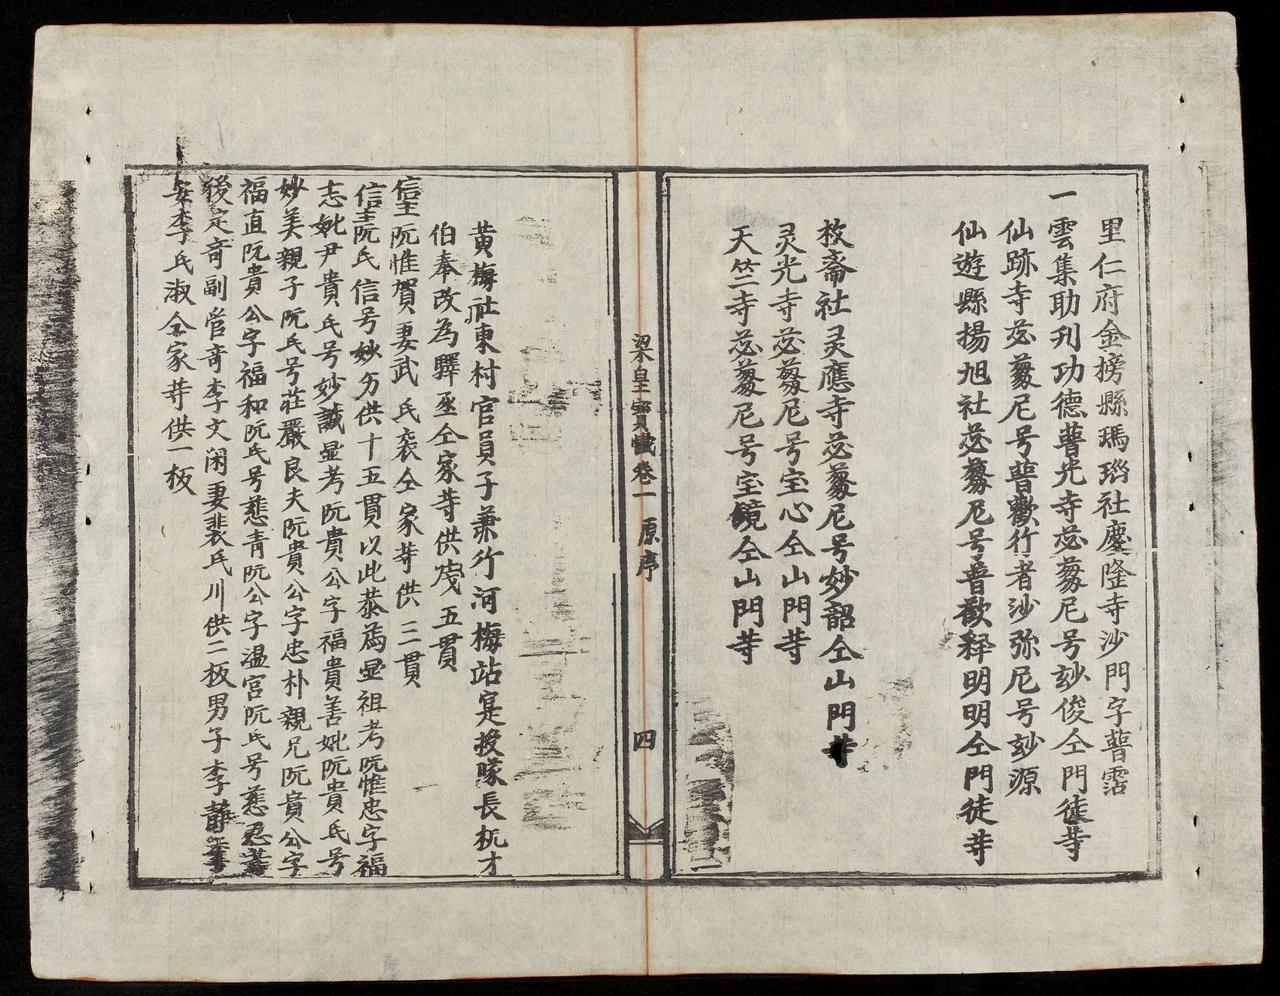 里仁府金榜縣瑪瑙社慶隆寺沙門字普霑
一雲集助刋功德普光寺苾蒭尼号玅俊仝門徒等
仙跡寺苾蒭尼号普歡行者沙弥尼号玅源
仙遊縣揚旭社苾蒭尼号普歡释明明仝門徒等
枚斋社灵應寺苾蒭尼号妙韶仝山門等
灵光寺苾蒭尼号宝心仝山門等
天竺寺苾蒭尼号宝鏡仝山門等
梁皇寶懺卷一 原序 四
黄梅社東村官員子兼行河梅站寔授隊長杬才
伯奉改為驛丞仝家等供戔五貫
信主阮惟賀妻武氏衮仝家等供三貫
信主阮氏信号妙夯供十五貫以此恭爲显祖考阮惟忠字福
志妣尹貴氏号妙誠显考阮貴公字福貴善妣阮貴氏号
妙美親子阮氏号莊嚴良夫阮貴公字忠朴親兄阮貴公字
福直阮貴公字福和阮氏号慈青阮公字温宫阮氏号慈忍
後定竒副管竒李文闲妻裴氏川供二板男子李
安李氏淑仝家等供一板